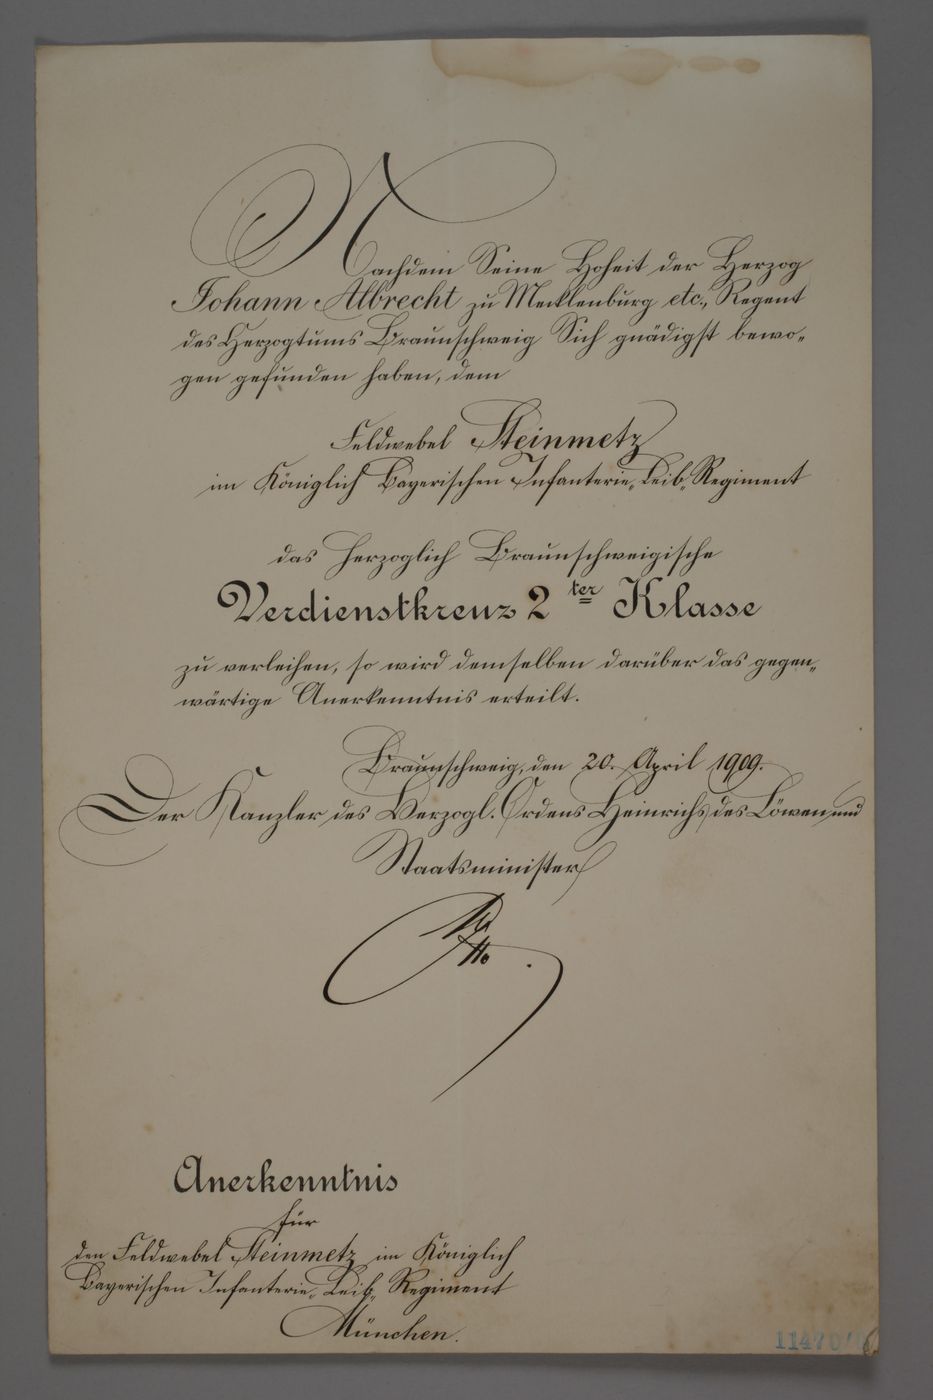 Nachdem Seine Hoheit der Herzog
Johann Albrecht zu Mecklenburg etc., Regent
des Herzogtums Braunschweig Sich gnädigst bewo„
gen gefunden haben, dem
Feldwebel Steinmetz
im Königlich Bayerischen Infanterie„Leib„Regiment
das Herzoglich Braunschweigische
Verdienstkreuz 2ter Klasse
zu verleihen, so wird demselben darüber das gegen„
wärtige Anerkenntnis erteilt.
Braunschweig, den 20. April 1909.
Der Kanzler des Herzogl. Ordens Heinrichs des Löwen und
Staatsminister
Anerkenntnis
für
den Feldwebel Steinmetz im Königlich
Bayerischen Infanterie„Leib„Regiment
München.